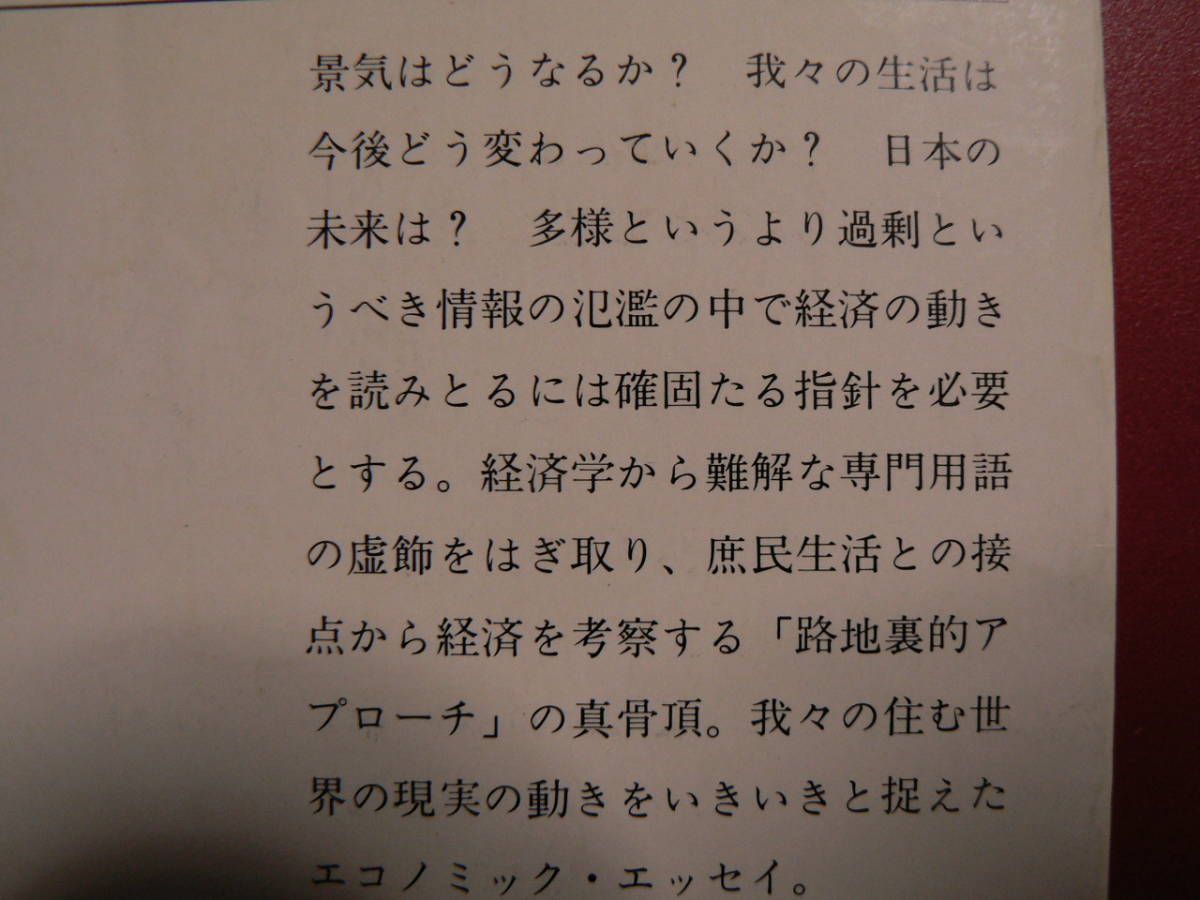 景気はどうなるか？　我々の生活は
今後どう変わっていくか？　日本の
未来は？　多様というより過剰とい
うべき情報の氾濫の中で経済の動き
を読みとるには確固たる指針を必要
とする。経済学から難解な専門用語
の虚飾をはぎ取り、庶民生活との接
点から経済を考察する「路地裏的ア
プローチ」の真骨頂。我々の住む世
界の現実の動きをいきいきと捉えた
エコノミック・エッセイ。